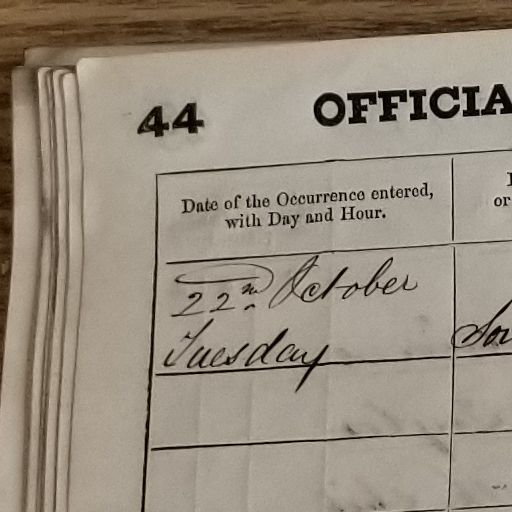 44 OFFICIA
Date of the Occurrence entered,
with Day and Hour.
or
22nd October
Tuesday